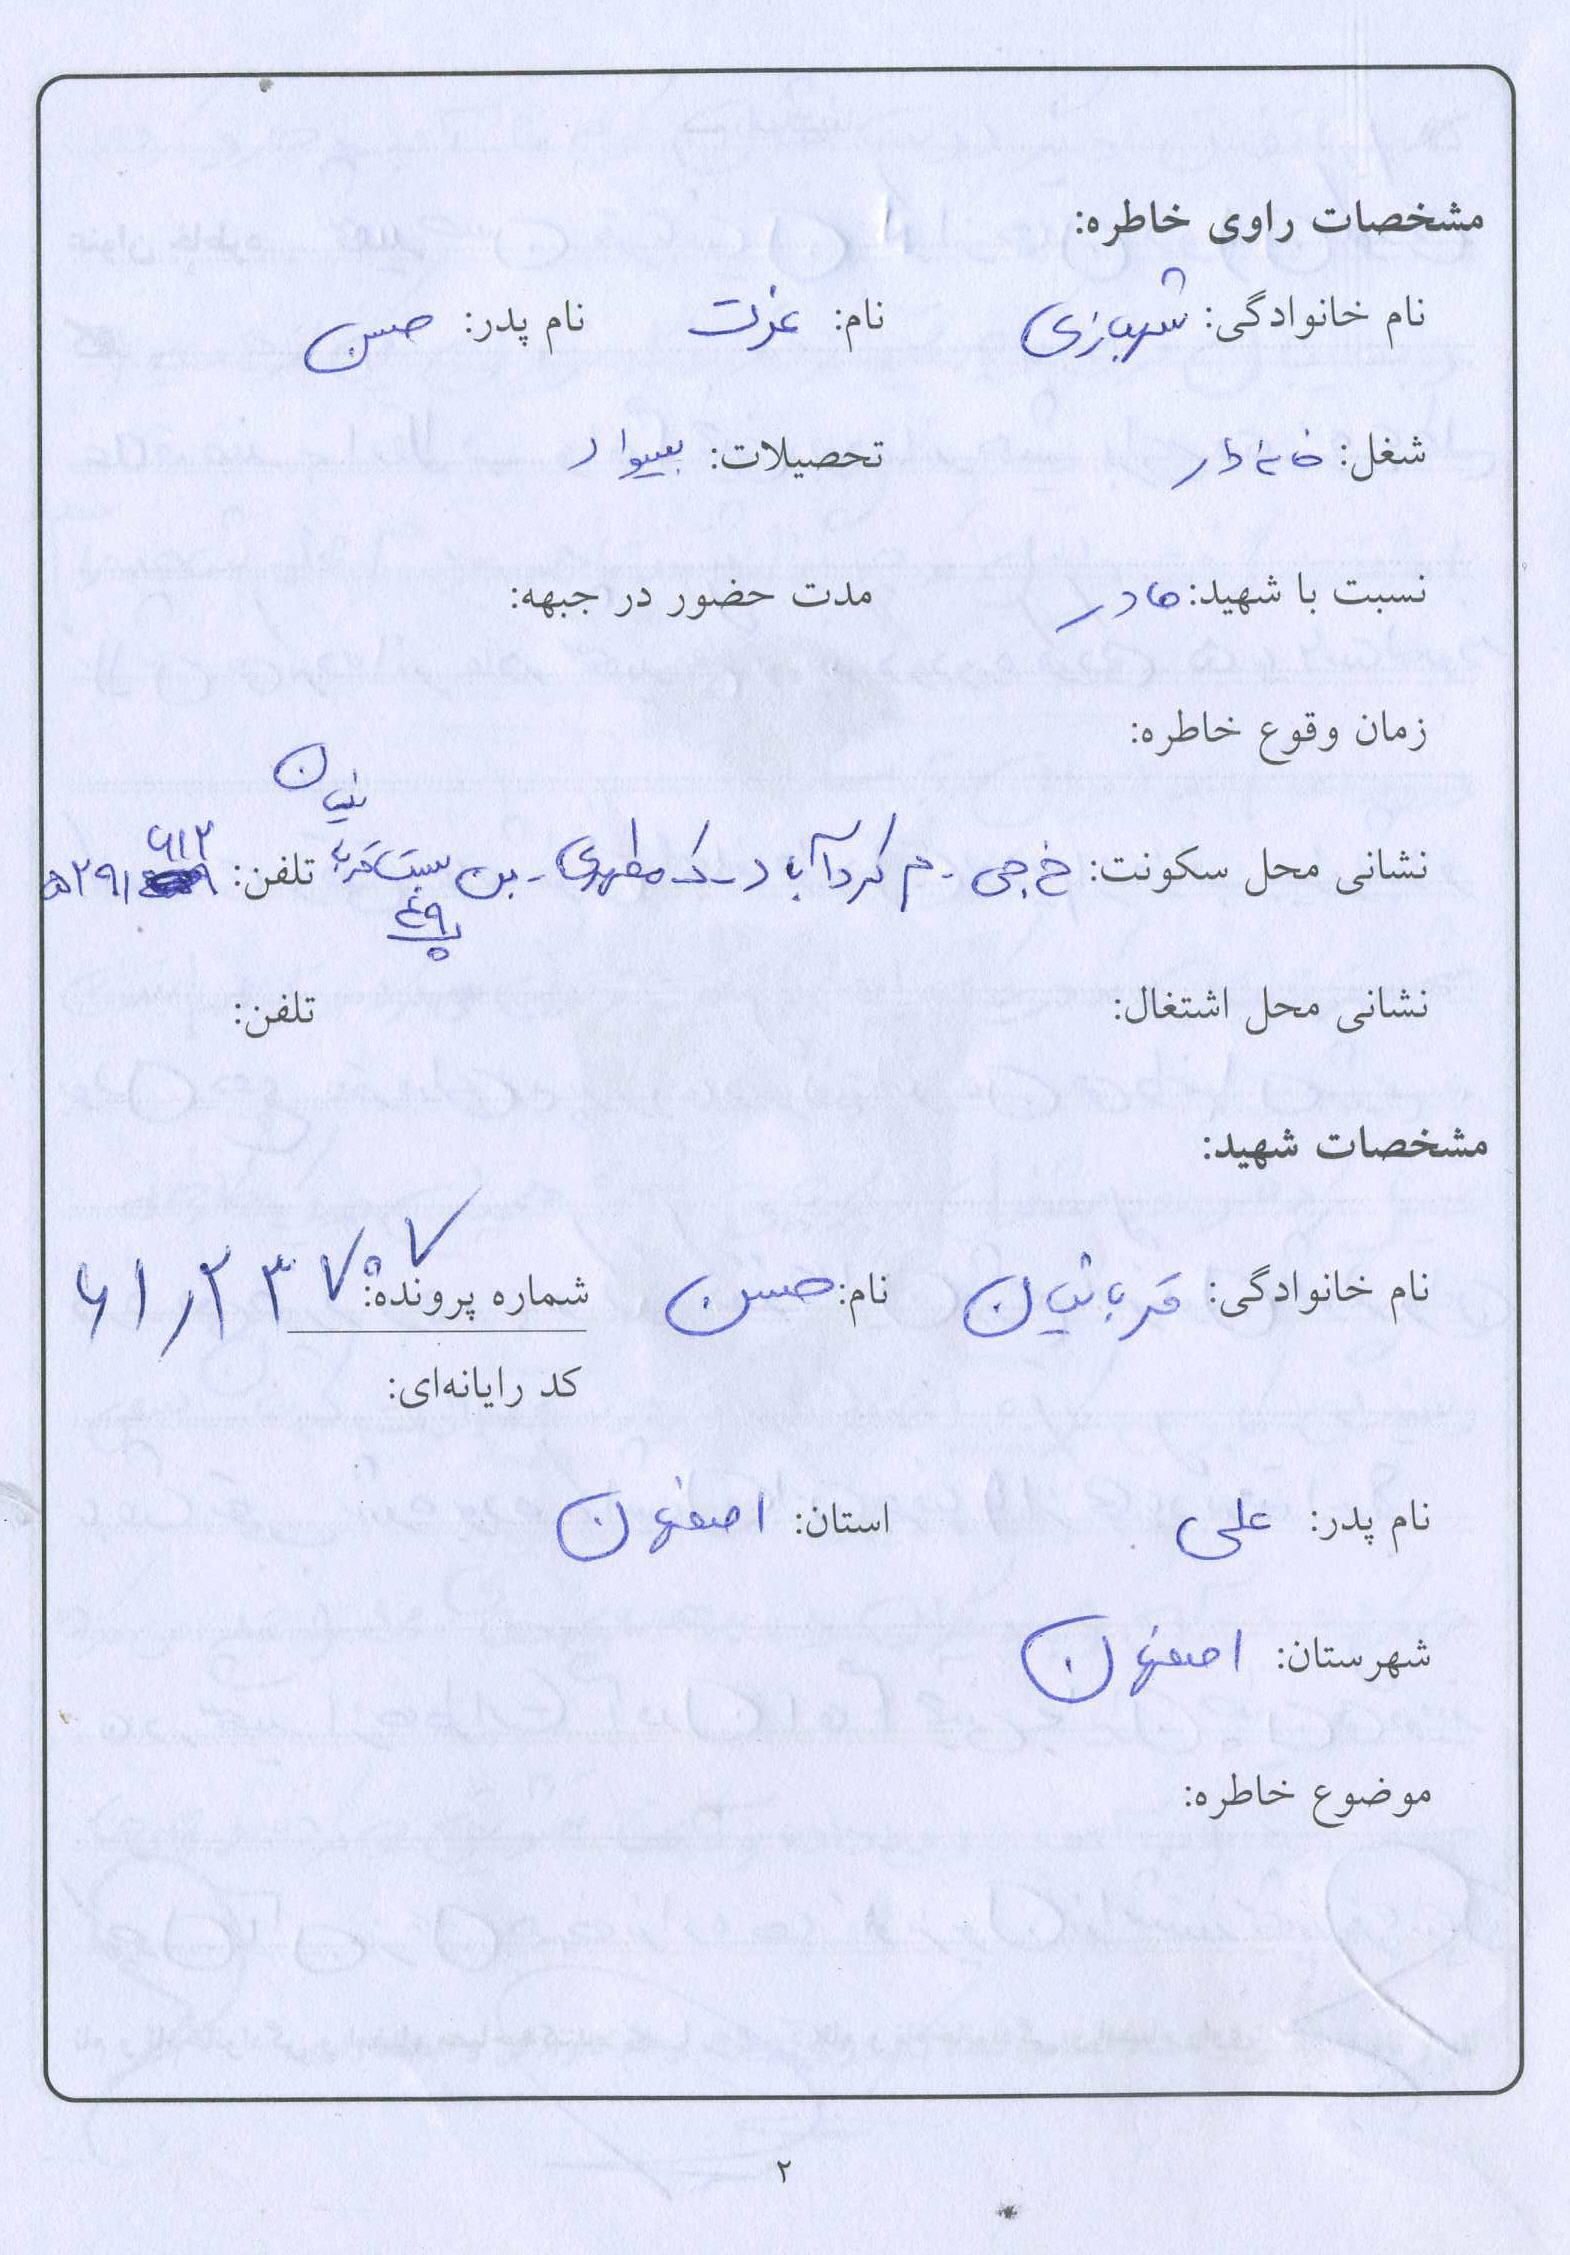 مشخصات راوی خاطره:
نام خانوادگی: شهبازی نام: عزت نام پدر: حسن
شغل: خانه دار تحصیلات: بیسواد
نسبت با شهید: مادر مدت حضور در جبهه:
زمان وقوع خاطره:
نشانی محل سکونت: خ جی - م کردآباد - ک مطهری - بن بست قربانیان پ ۴۹ تلفن:
نشانی محل اشتغال: تلفن:
مشخصات شهید:
نام خانوادگی: قربانیان نام: حسن شماره پرونده: ۶۱/۲۳۷۵۷
کد رایانه‌ای:
نام پدر: علی استان: اصفهان
شهرستان: اصفهان
موضوع خاطره:
۲